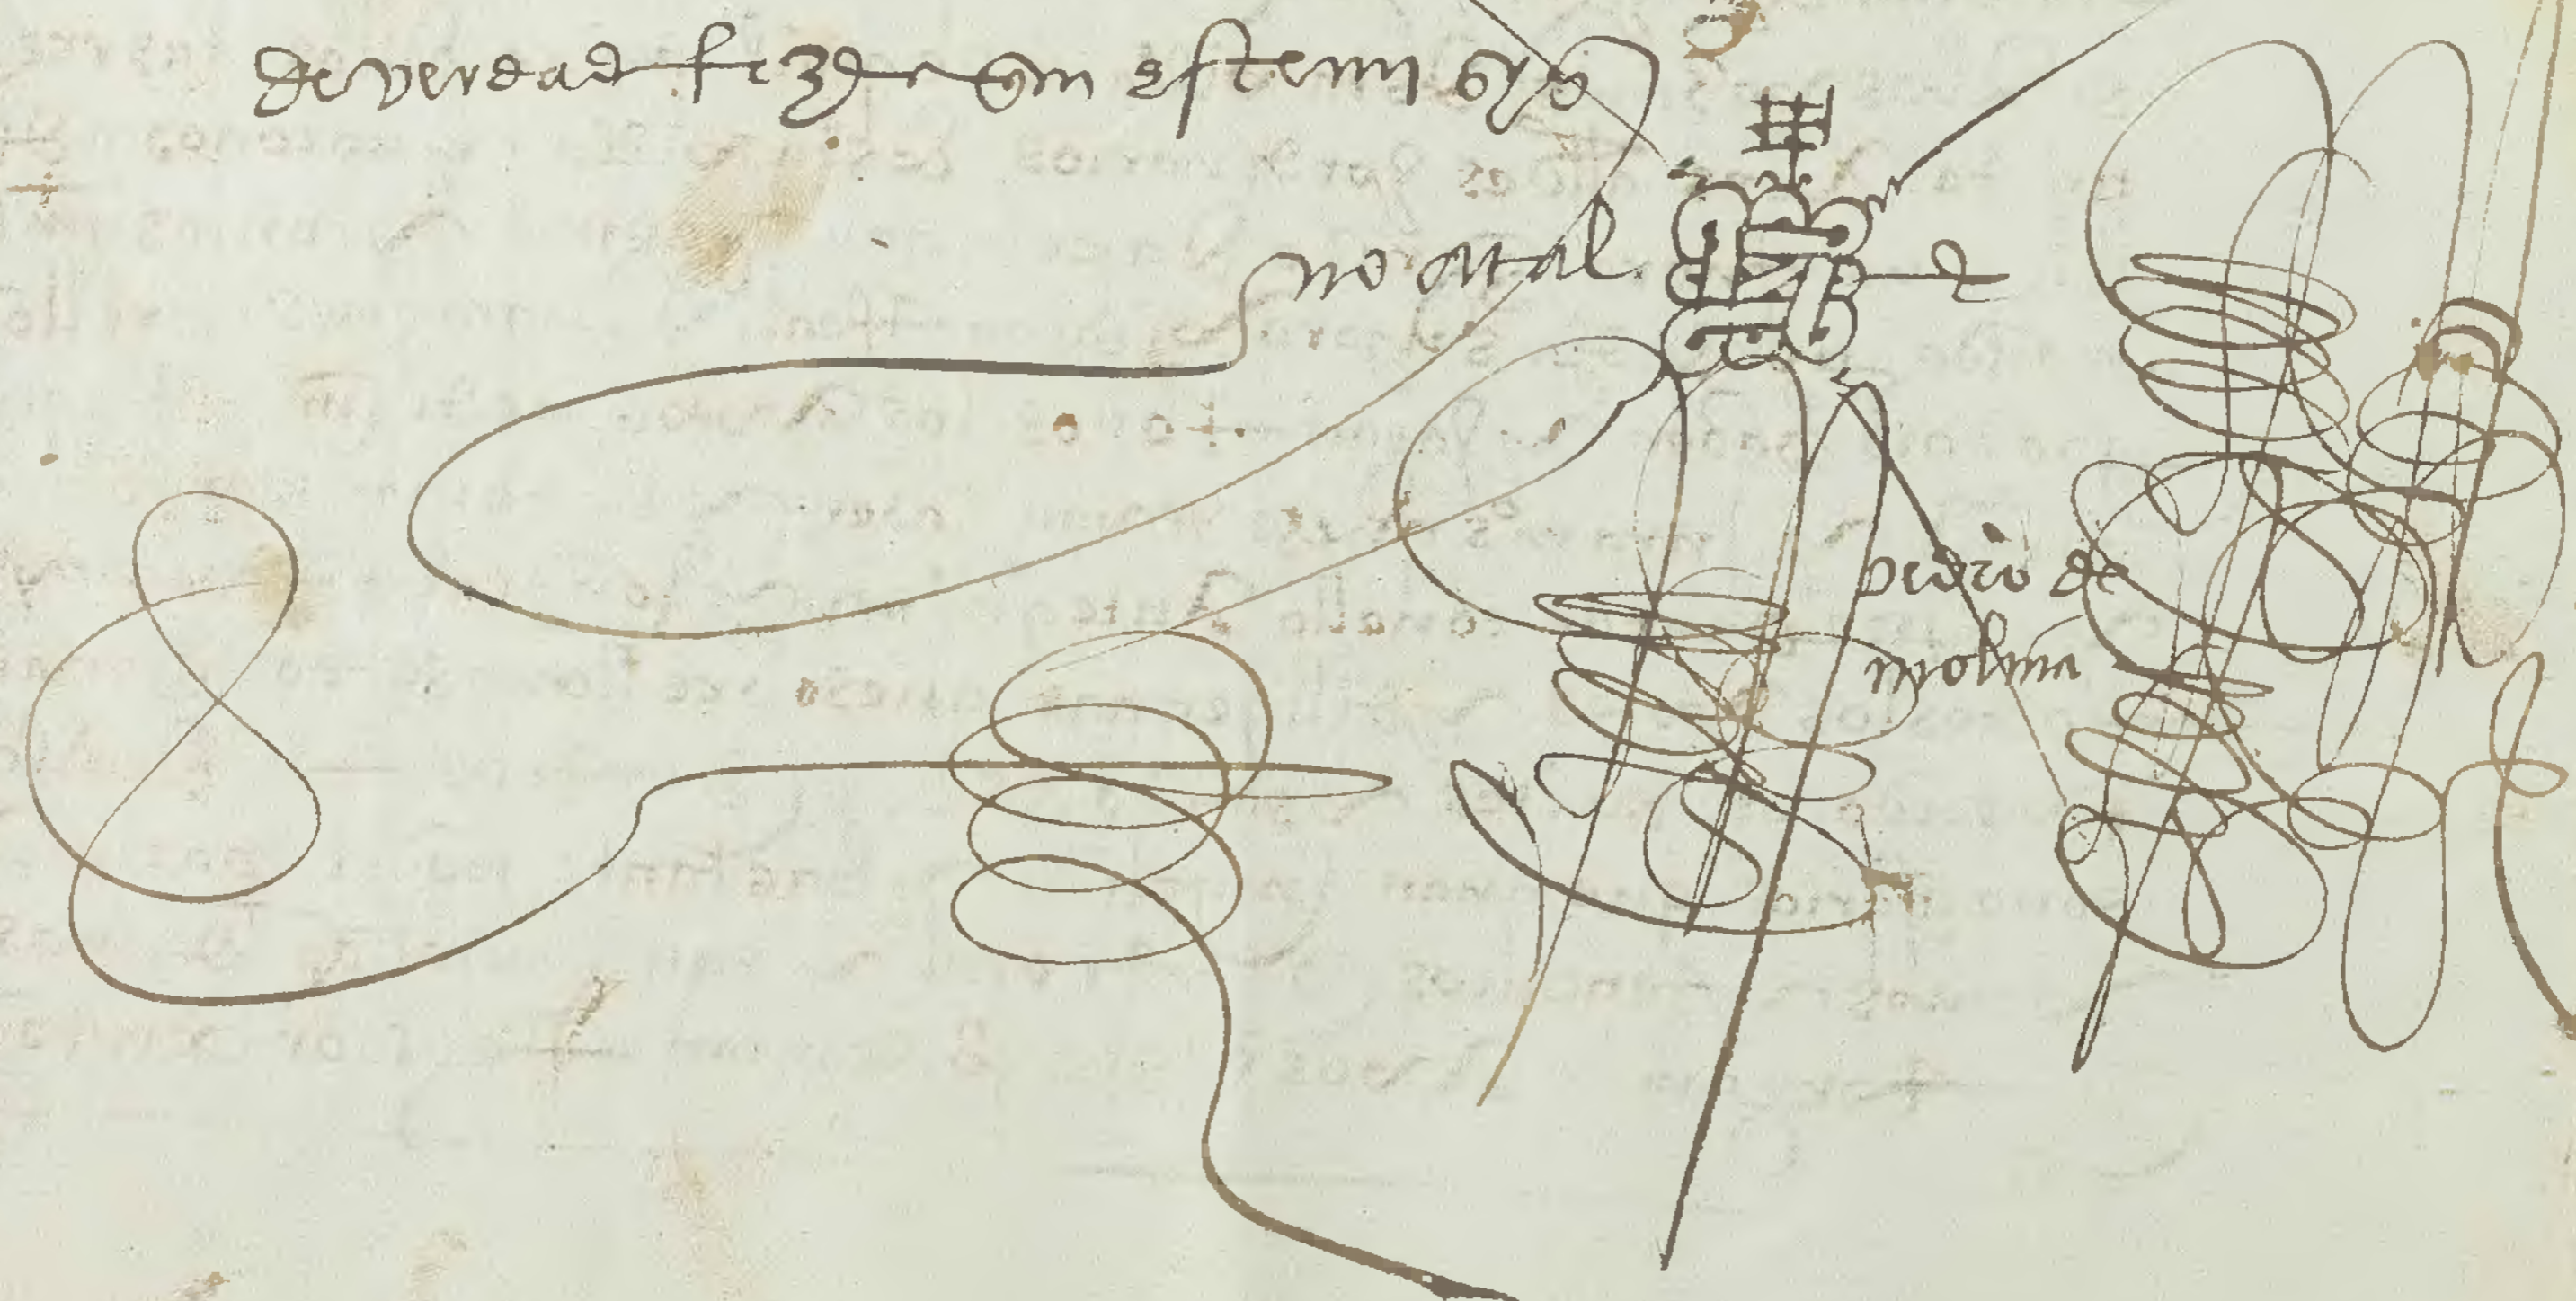 de verdad fize aqui este mi sygº
no atal
pedro de
molina